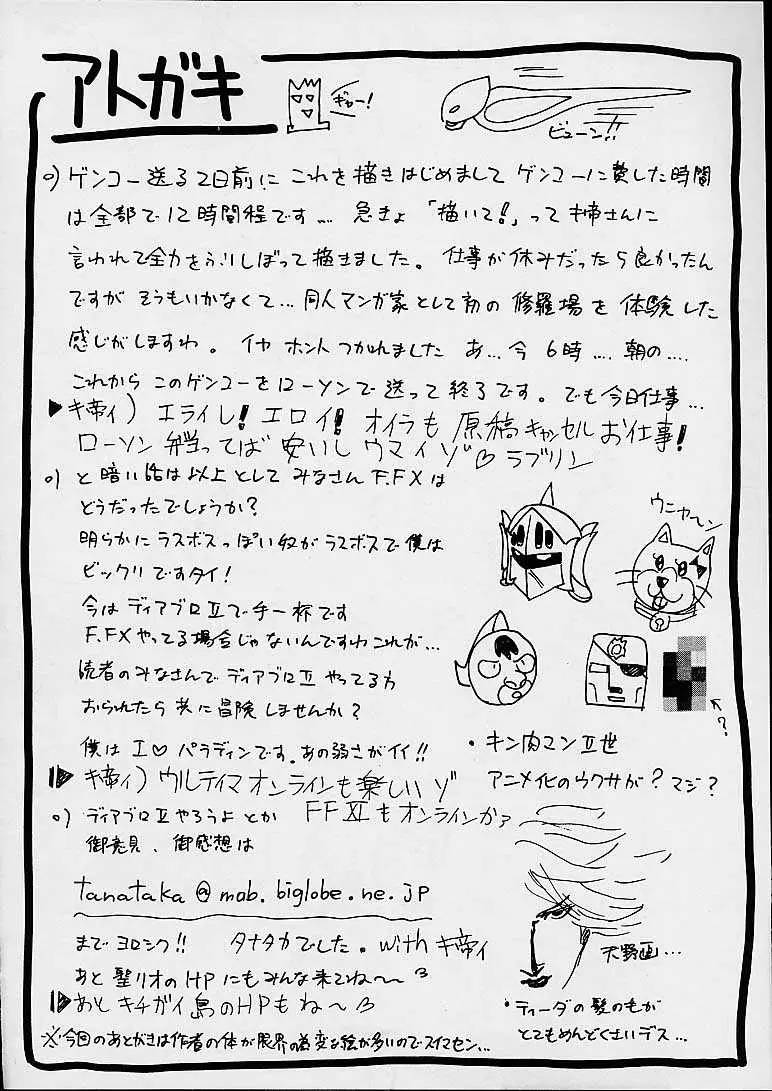 アトガキ
ギャー!
ビューン!!
○)ゲンコー送る2日前に これを描きはじめまして ゲンコーに費した時間
は全部で12時間程です… 急きょ「描いて!」ってキ帝さんに
言われて全力をふりしぼって描きました。仕事が休みだったら良かったん
ですが そうもいかなくて… 同人マンガ家として初の修羅場を体験した
感じがしますわ。イヤ ホント つかれました あ…今6時…朝の…
これから このゲンコーをローソンで送って終了です。でも今日仕事…
▶キ帝ィ)エライし!エロイ!オイラも原稿キャンセルお仕事!
ローソン弁当ってば安いし ウマイゾ♡ラブリン
○)と暗い話は以上として みなさんF.FXは
どうだったでしょうか?
明らかにラスボスっぽい奴がラスボスで僕は
ビックリですタイ!
今はディアブロⅡで手一杯です
F.FXやってる場合じゃないんですわこれが…
読者のみなさんでディアブロⅡやってる方
おられたら共に冒険しませんか?
僕はI♡パラディンです。あの弱さがイイ!!
▶キ帝ィ)ウルティマオンラインも楽しいゾ
ウニャ〜ン
↑?
・キン肉マンⅡ世
アニメ化のウワサが?マジ?
○)ディアブロⅡやろうよ とか FFXIもオンラインかァ
御意見、御感想は
tanataka@mob.biglobe.ne.jp
までヨロシク!! タナタカでした。with キ帝ィ
あと聖リオのHPにもみんな来てね〜
▶あと キチガイ島のHPもね〜
天野画…
・ティーダの髪のもが
とてもめんどくさいデス…
※今回のあとがきは作者の体が限界の為変な絵が多いのでスイマセン…